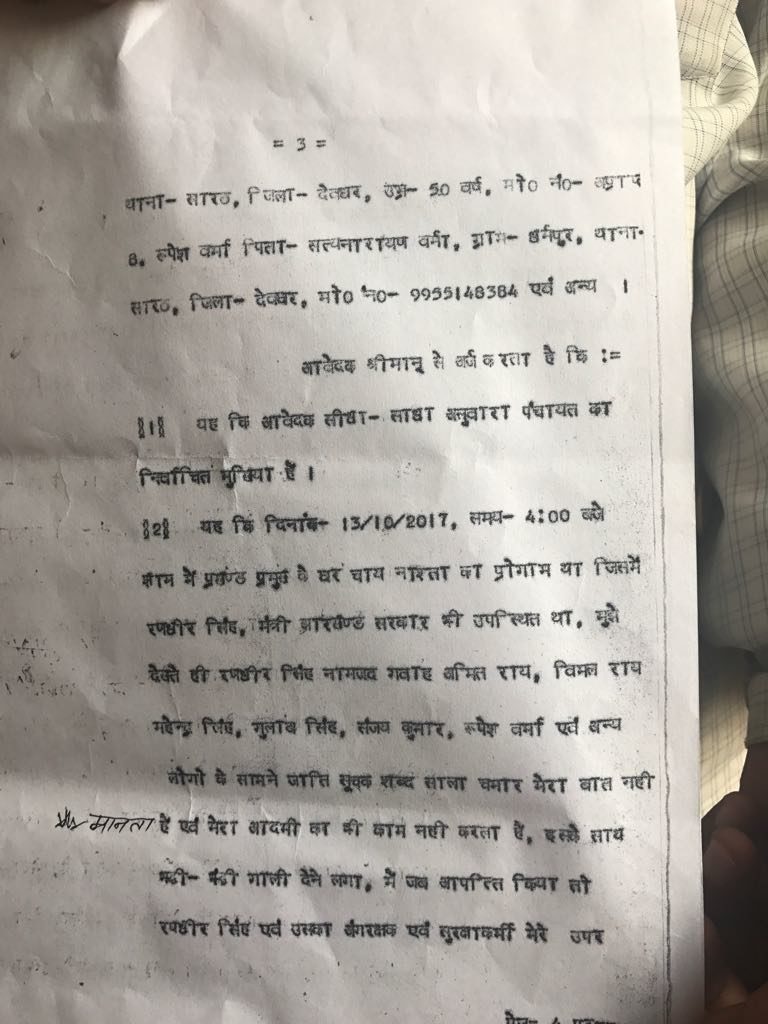 = 3 =
थाना- सारठ, जिला- देवघर, उम्र- 50 वर्ष, मो0 नं0- अप्राप्त
8. रूपेश वर्मा पिता- सत्यनारायण वर्मा, ग्राम- धर्मपुर, थाना-
सारठ, जिला- देवघर, मो0 नं0- 9955148384 एवं अन्य ।
आवेदक श्रीमान् से अर्ज करता है कि :=
§1§ यह कि आवेदक सीधा- साधा अलुवारा पंचायत का
निर्वाचित मुखिया हैं ।
§2§ यह कि दिनांक- 13/10/2017, समय- 4:00 बजे
शाम में प्रखण्ड प्रमुख के घर चाय नाश्ता का प्रोगाम था जिसमें
रणधीर सिंह, मंत्री झारखण्ड सरकार भी उपस्थित था, मुझे
देखते ही रणधीर सिंह नामजद गवाह अमित राय, विमल राय
महेन्द्र सिंह, गुलाब सिंह, संजय कुमार, रूपेश वर्मा एवं अन्य
लोगो के सामने जाति सूचक शब्द साला चमार मेरा बात नही
मानता है एवं मेरा आदमी का भी काम नही करता है, इसके साथ
भद्दी- भद्दी गाली देने लगा, मैं जब आपत्ति किया तो
रणधीर सिंह एवं उसका अंगरक्षक एवं सुरक्षाकर्मी मेरे उपर